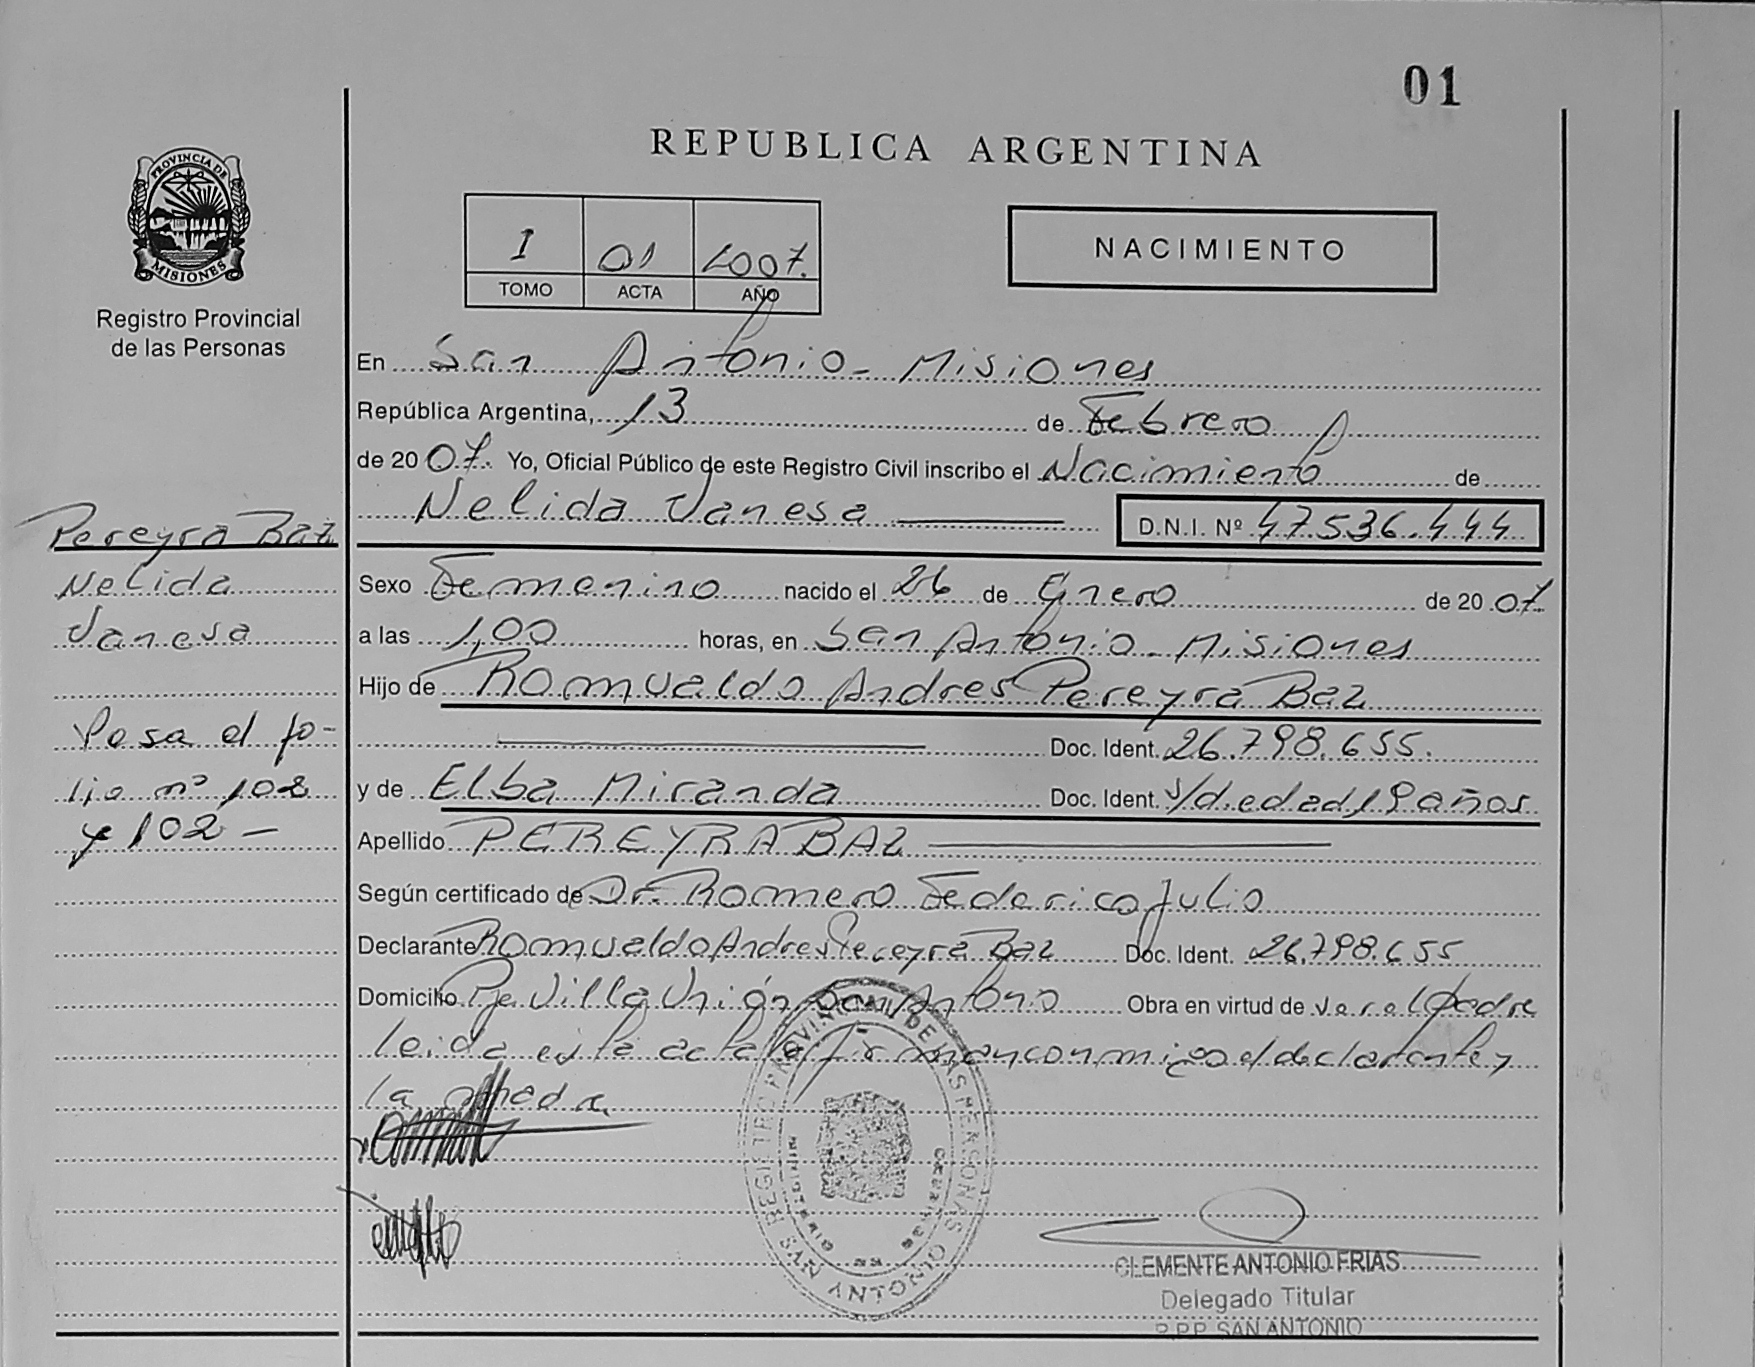 01
REPUBLICA ARGENTINA
PROVINCIA DE
MISIONES
Registro Provincial
de las Personas
I 01 2007.
TOMO ACTA AÑO
NACIMIENTO
En San Antonio - Misiones
República Argentina, 13 de Febrero
de 20 07. Yo, Oficial Público de este Registro Civil inscribo el Nacimiento de
Nelida Vanesa D.N.I. Nº 47.536.444
Pereyra Baz
Nelida
Vanesa
Pasa al fo-
lio nº 102
y 102 -
Sexo Femenino nacido el 26 de Enero de 20 07.
a las 1,00 horas, en San Antonio - Misiones
Hijo de Romualdo Andres Pereyra Baz
Doc. Ident. 26.798.655.
y de Elba Miranda Doc. Ident. s/d. edad 19 años
Apellido PEREYRA BAZ
Según certificado de Dr. Romero Federico Julio
Declarante Romualdo Andres Pereyra Baz Doc. Ident. 26.798.655
Domicilio Pje Villa Unión San Antonio Obra en virtud de ser el padre
leida este acta la firman conmigo el declarante y
la
REGISTRO PROVINCIAL DE LAS PERSONAS
MINISTERIO
SAN ANTONIO
CLEMENTE ANTONIO FRIAS
Delegado Titular
R.P.P. SAN ANTONIO